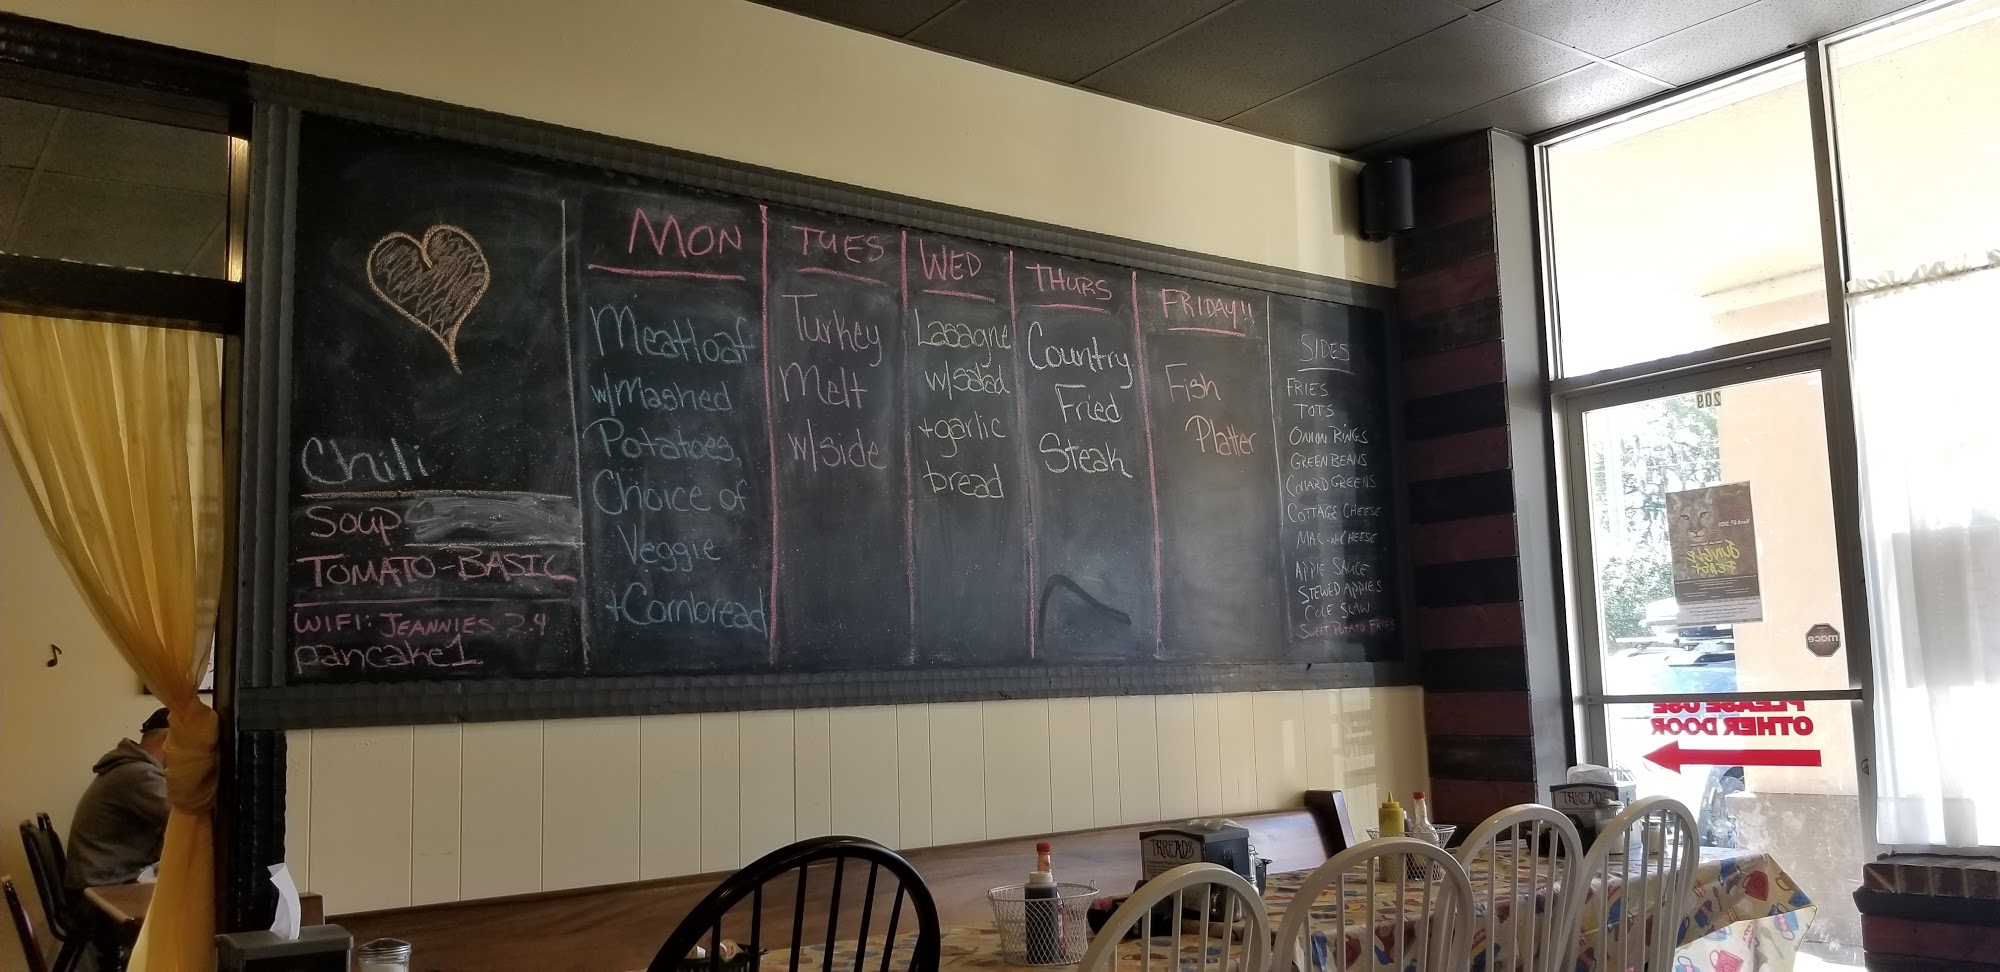 Chili
Soup
TOMATO-BASIC
WIFI: JEANNIES 2.4
pancake1
MON
Meatloaf
w/Mashed
Potatoes,
Choice of
Veggie
+Cornbread
TUES
Turkey
Melt
w/side
WED
Lasagne
w/salad
+garlic
bread
THURS
Country
Fried
Steak
FRIDAY!!
Fish
Platter
SIDES
FRIES
TOTS
ONION RINGS
GREEN BEANS
COLLARD GREENS
COTTAGE CHEESE
MAC-N-CHEESE
APPLE SAUCE
STEWED APPLES
COLE SLAW
SWEET POTATO FRIES
209
JUNGLE
FEAST
mace
PLEASE USE
OTHER DOOR
THREADS
THREADS